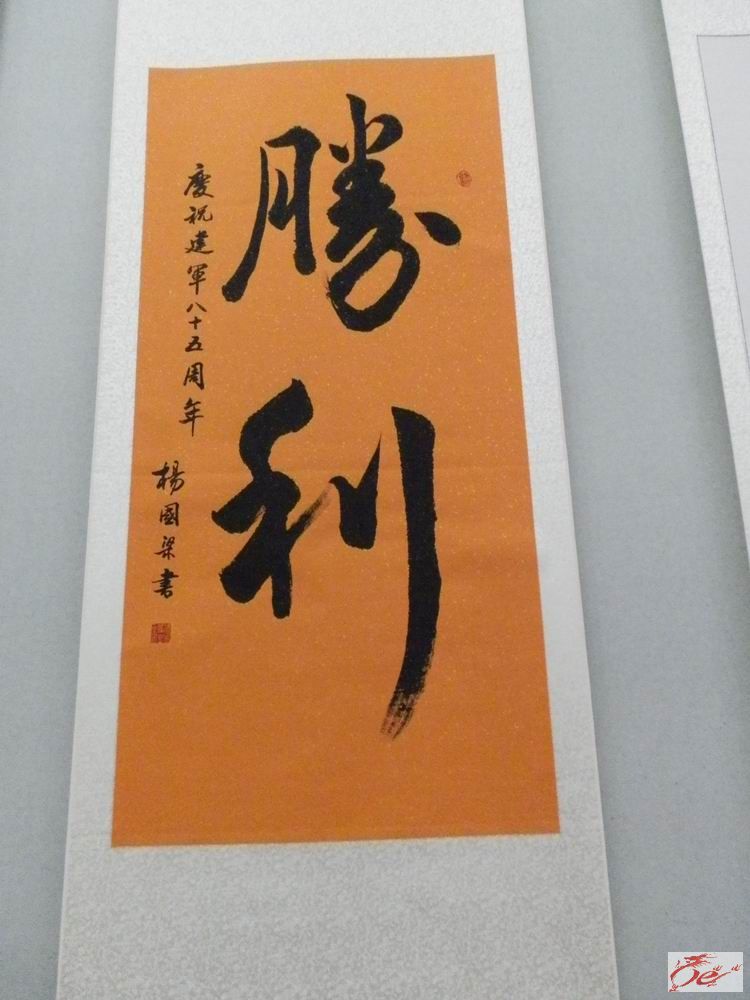 勝利
慶祝建軍八十五周年
楊國梁書